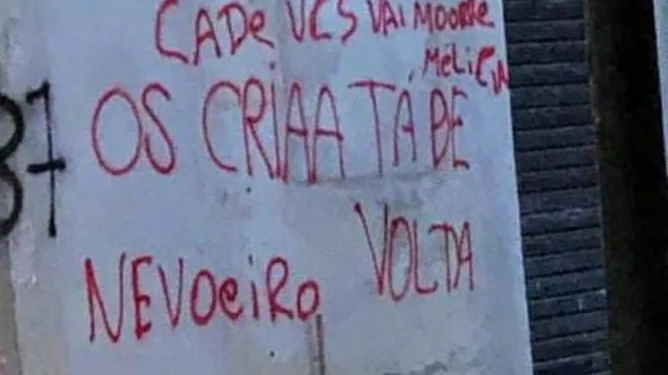 CADe VCS VAI MOORRe
MéLiCiA
OS CRIAA TÁ DE
VOLTA
NEVOeiRo
37